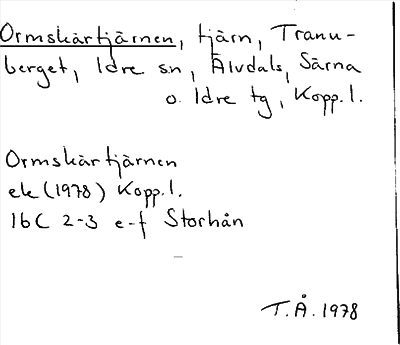 Ormskärtjärnen, tjärn, Tranu-
berget, Idre sn, Älvdals, Särna
o. Idre tg, Kopp. l.
Ormskärtjärnen
ek (1978) Kopp. l.
16C 2-3 e-f Storhån
T.Å. 1978